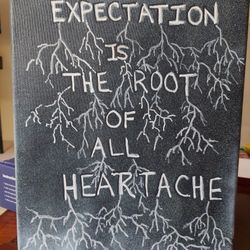 EXPECTATION
IS
THE ROOT
OF
ALL
HEARTACHE